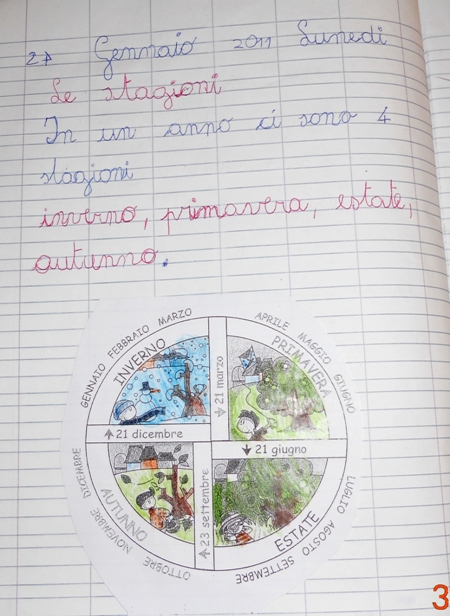 24 Gennaio 2011 Lunedì
Le stagioni
In un anno ci sono 4
stagioni
inverno, primavera, estate,
autunno.
GENNAIO FEBBRAIO MARZO
APRILE MAGGIO GIUGNO
INVERNO
PRIMAVERA
21 marzo
21 dicembre
21 giugno
23 settembre
AUTUNNO
ESTATE
OTTOBRE NOVEMBRE DICEMBRE
LUGLIO AGOSTO SETTEMBRE
3